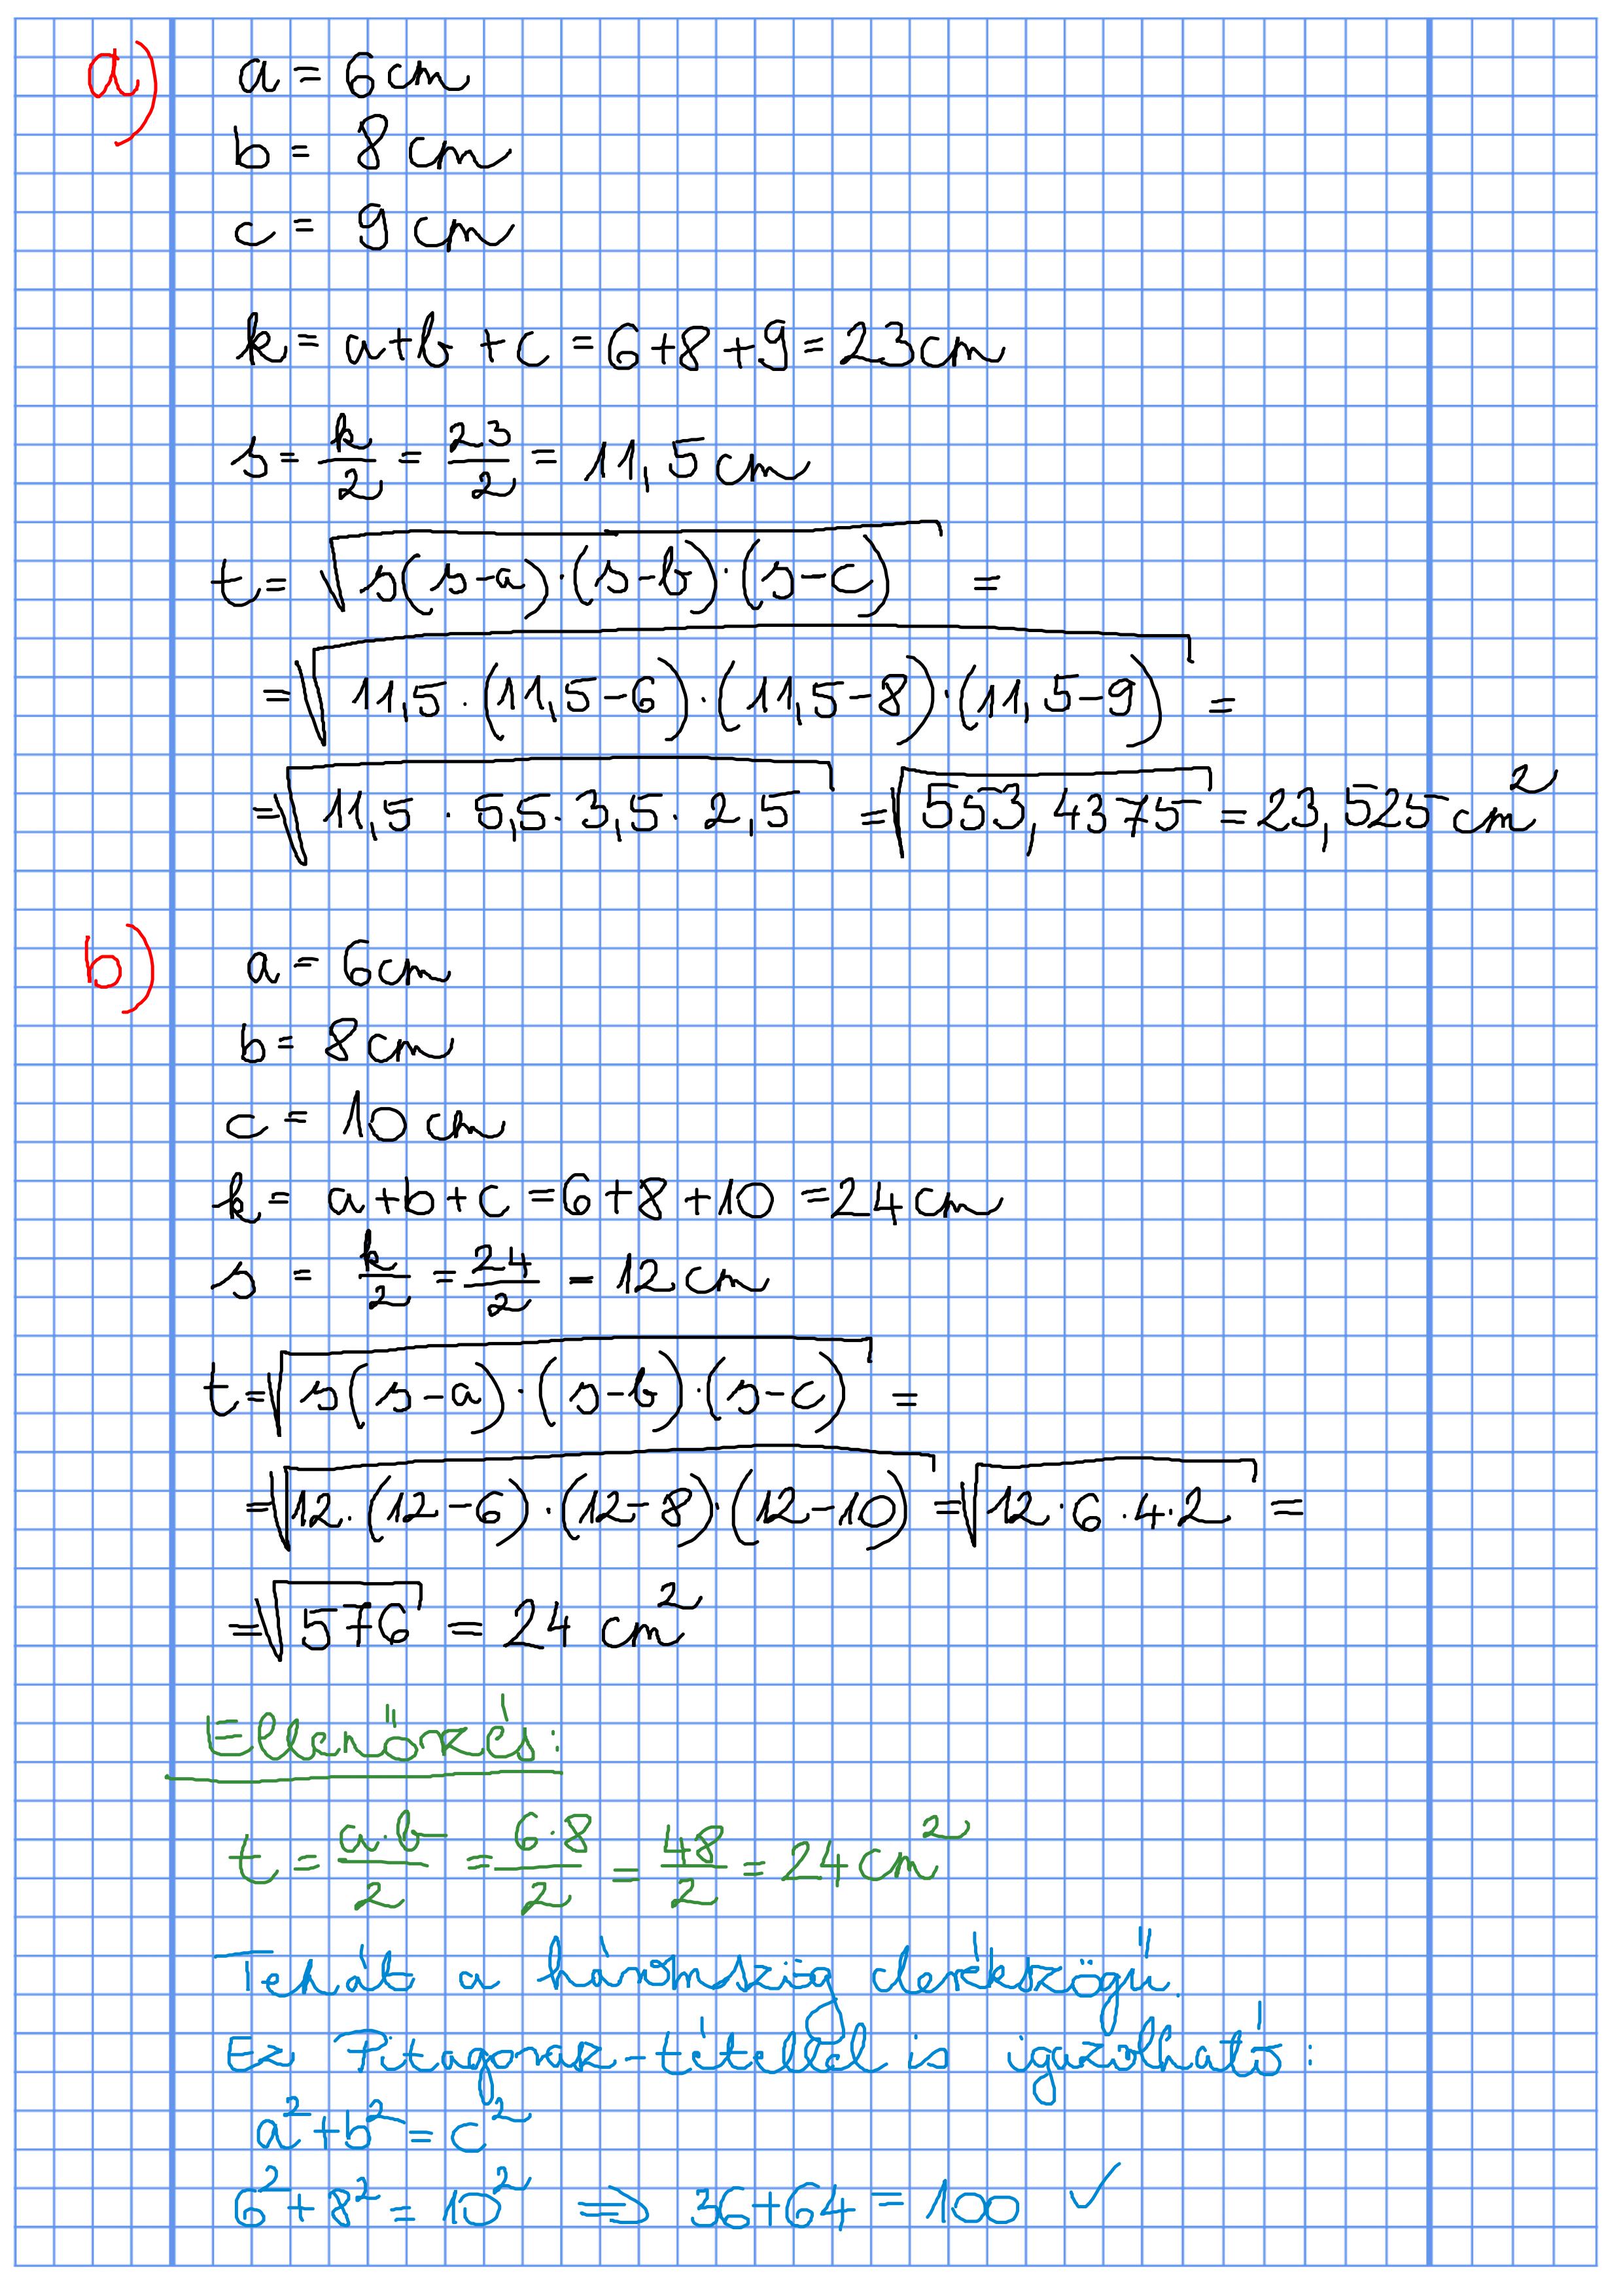 a) a = 6 cm
b = 8 cm
c = 9 cm
k = a+b+c = 6+8+9 = 23 cm
s = k/2 = 23/2 = 11,5 cm
t = √(s(s-a)·(s-b)·(s-c)) =
= √(11,5·(11,5-6)·(11,5-8)·(11,5-9)) =
= √(11,5·5,5·3,5·2,5) = √553,4375 = 23,525 cm²
b) a = 6 cm
b = 8 cm
c = 10 cm
k = a+b+c = 6+8+10 = 24 cm
s = k/2 = 24/2 = 12 cm
t = √(s(s-a)·(s-b)·(s-c)) =
= √(12·(12-6)·(12-8)·(12-10)) = √(12·6·4·2) =
= √576 = 24 cm²
Ellenőrzés:
t = a·b/2 = 6·8/2 = 48/2 = 24 cm²
Tehát a háromszög derékszögű.
Ez Pitagorasz-tétellel is igazolható:
a²+b² = c²
6²+8² = 10² ⇒ 36+64 = 100 ✓